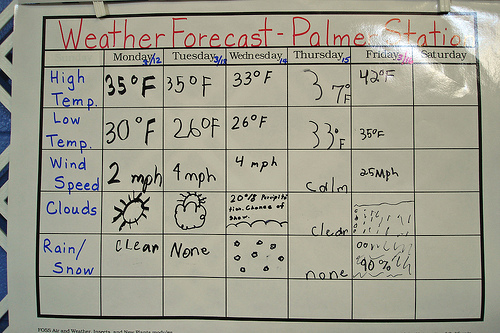 Weather Forecast - Palmer Statio
Monday Tuesday Wednesday Thursday Friday Saturday
High Temp. 35°F 35°F 33°F 37°F 42°F
Low Temp. 30°F 26°F 26°F 33°F 35°F
Wind Speed 2 mph 4 mph 4 mph calm 25mph
Clouds 20% Precipita
tion. Chance of
snow. clear
Rain/
Snow clear None none 90%
FOSS Air and Weather, Insects, and New Plants modules